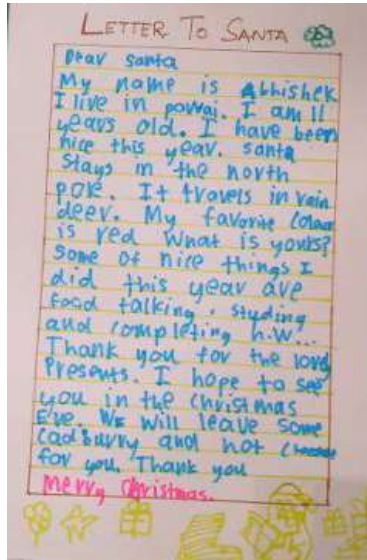 LETTER TO SANTA
Dear santa
My name is Abhishek
I live in powai. I am 11
years old. I have been
nice this year. santa
stays in the north
pole. It travels in rain
deer. My favorite Colour
is red What is yours?
some of nice things I
did this year are
food talking, studing
and completing h.w...
Thank you for the lovly
Presents. I hope to see
you in the christmas
Eve. We will leave some
Cadburry and hot Chocolate
for you. Thank you
merry christmas.